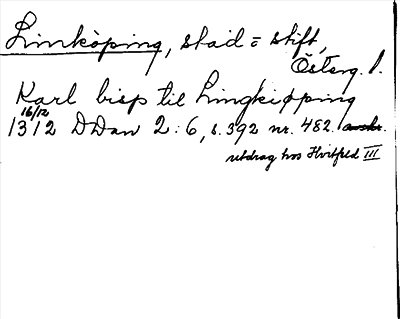 Linköping, stad = stift,
Österg. l.
Karl bisp til Lingkiøpping
16/12
1312 DDan 2:6, s. 392 nr. 482.
utdrag hos Hvitfeld III